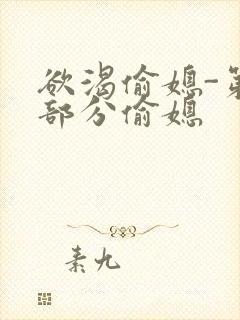 欲渴偷媳-第
部分偷媳
素九